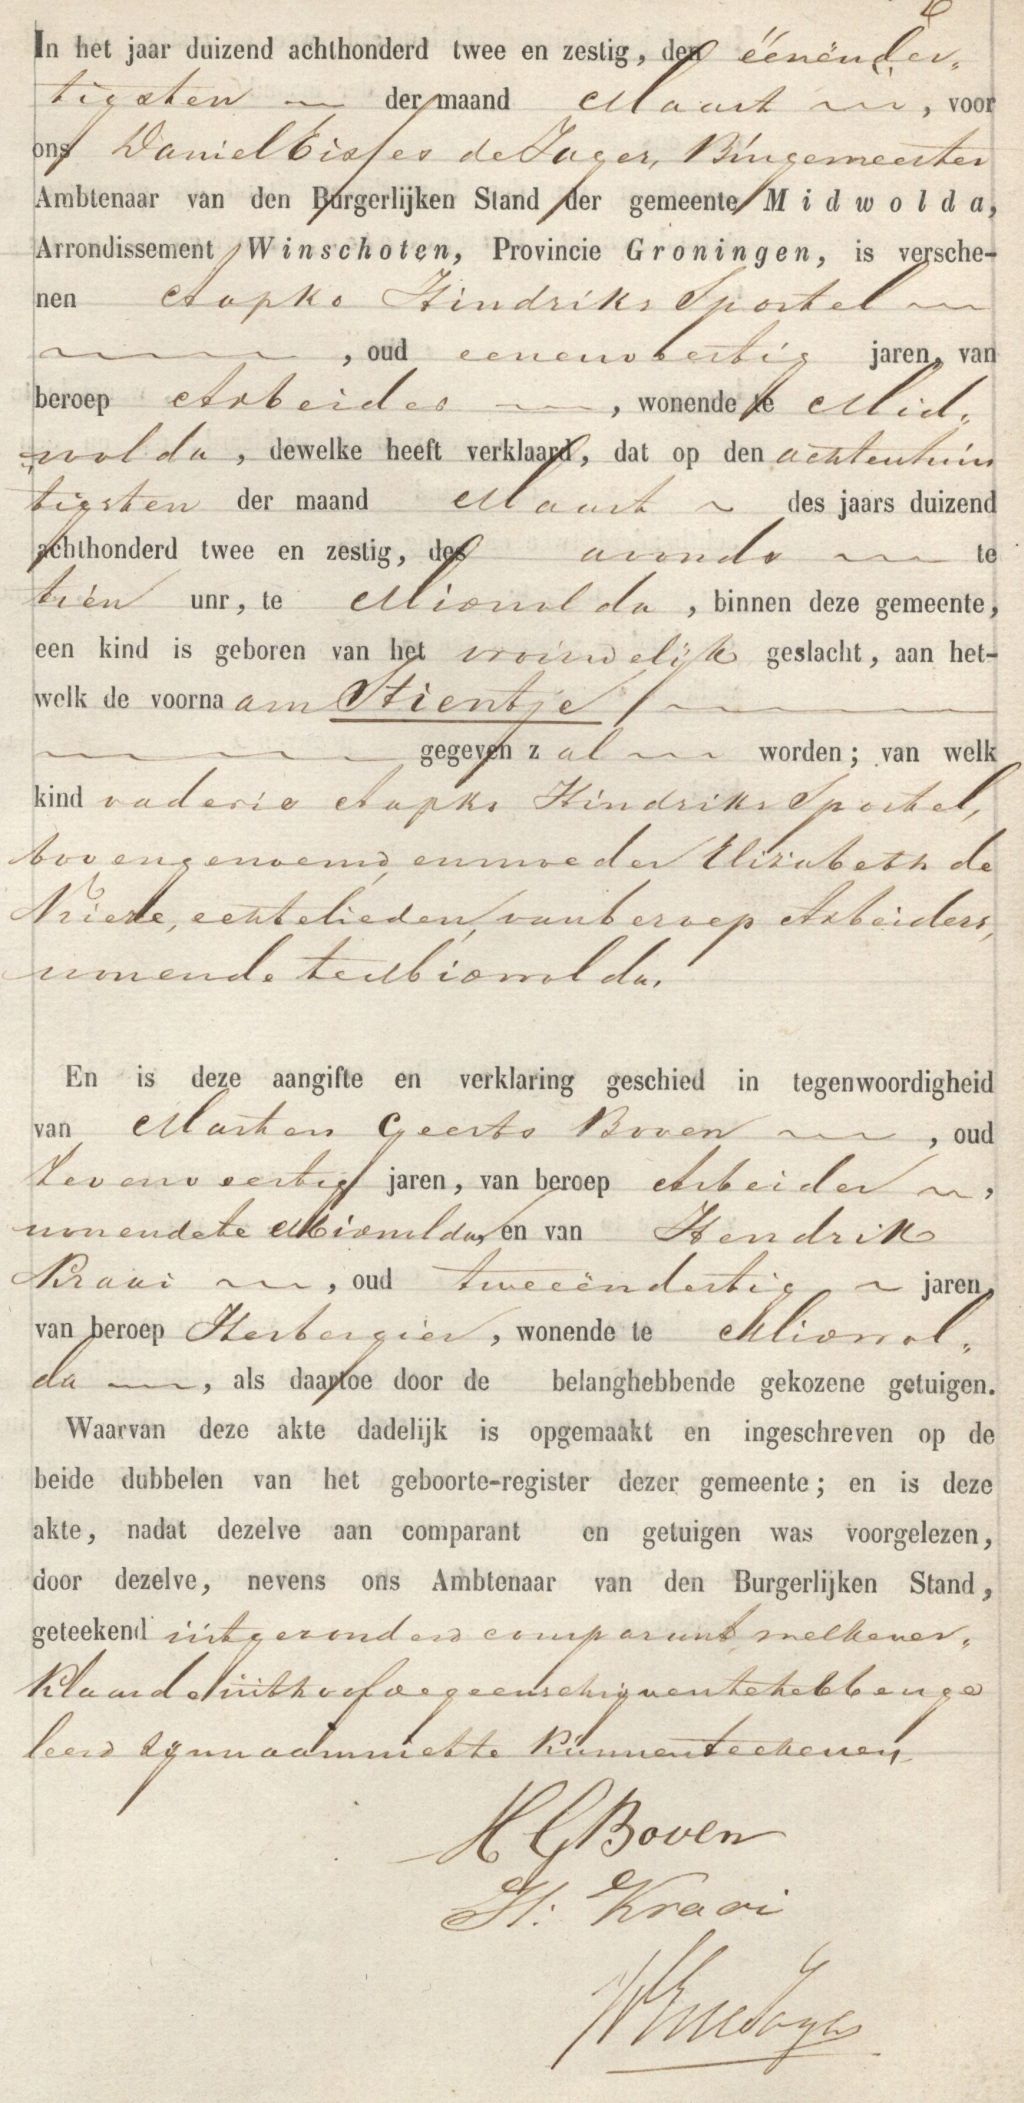 In het jaar duizend achthonderd twee en zestig, den éénënder-
tigsten der maand Maart, voor
ons Daniel Eisses de Jager, Burgemeester
Ambtenaar van den Burgerlijken Stand der gemeente Midwolda,
Arrondissement Winschoten, Provincie Groningen, is versche-
nen Aapko Hindriks Sportel
, oud eenenveertig jaren, van
beroep Arbeider, wonende te Mid-
wolda, dewelke heeft verklaard, dat op den achtentwin
tigsten der maand Maart des jaars duizend
achthonderd twee en zestig, des avonds te
tien unr, te Midwolda, binnen deze gemeente,
een kind is geboren van het vrouwelijk geslacht, aan het-
welk de voornaam Stientje
gegeven zal worden; van welk
kind vader is Aapko Hindriks Sportel,
bovengenoemd, en moeder Elizabeth de
Vrieze, echtelieden, van beroep Arbeiders,
wonende te Midwolda.
En is deze aangifte en verklaring geschied in tegenwoordigheid
van Marten Geerts Boven, oud
zevenveertig jaren, van beroep Arbeider,
wonende te Midwolda, en van Hendrik
Kraai, oud tweeëndertig jaren,
van beroep Herbergier, wonende te Midwol-
da, als daartoe door de belanghebbende gekozene getuigen.
Waarvan deze akte dadelijk is opgemaakt en ingeschreven op de
beide dubbelen van het geboorte-register dezer gemeente; en is deze
akte, nadat dezelve aan comparant en getuigen was voorgelezen,
door dezelve, nevens ons Ambtenaar van den Burgerlijken Stand,
geteekend uitgezonderd comparant, welke ver-
klaarde uit hoofde geen schrijven te hebben ge
leerd zijn naam niet te kunnen teekenen.
M G Boven
H. Kraai
DE de Jager